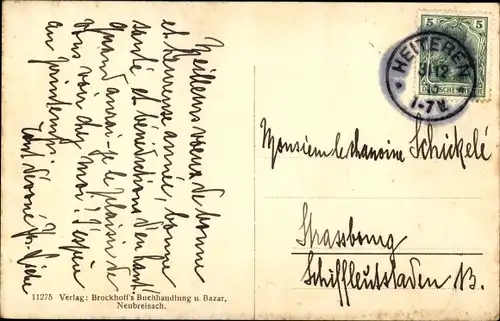 Meilleurs vœux de bonne
et heureuse année, bonne
santé et bénédictions d'en haut
Quand aurai-je le plaisir de
vous voir chez moi? J'espère
au printemps.
Tout dévoué
11275 Verlag: Brockhoff's Buchhandlung u. Bazar,
Neubreisach.
5 5
DEUTSCHES REICH
HEITEREN
31 12
1-7 V.
Monsieur le chanoine Schickelé
Strassbourg
Schiffleutstaden